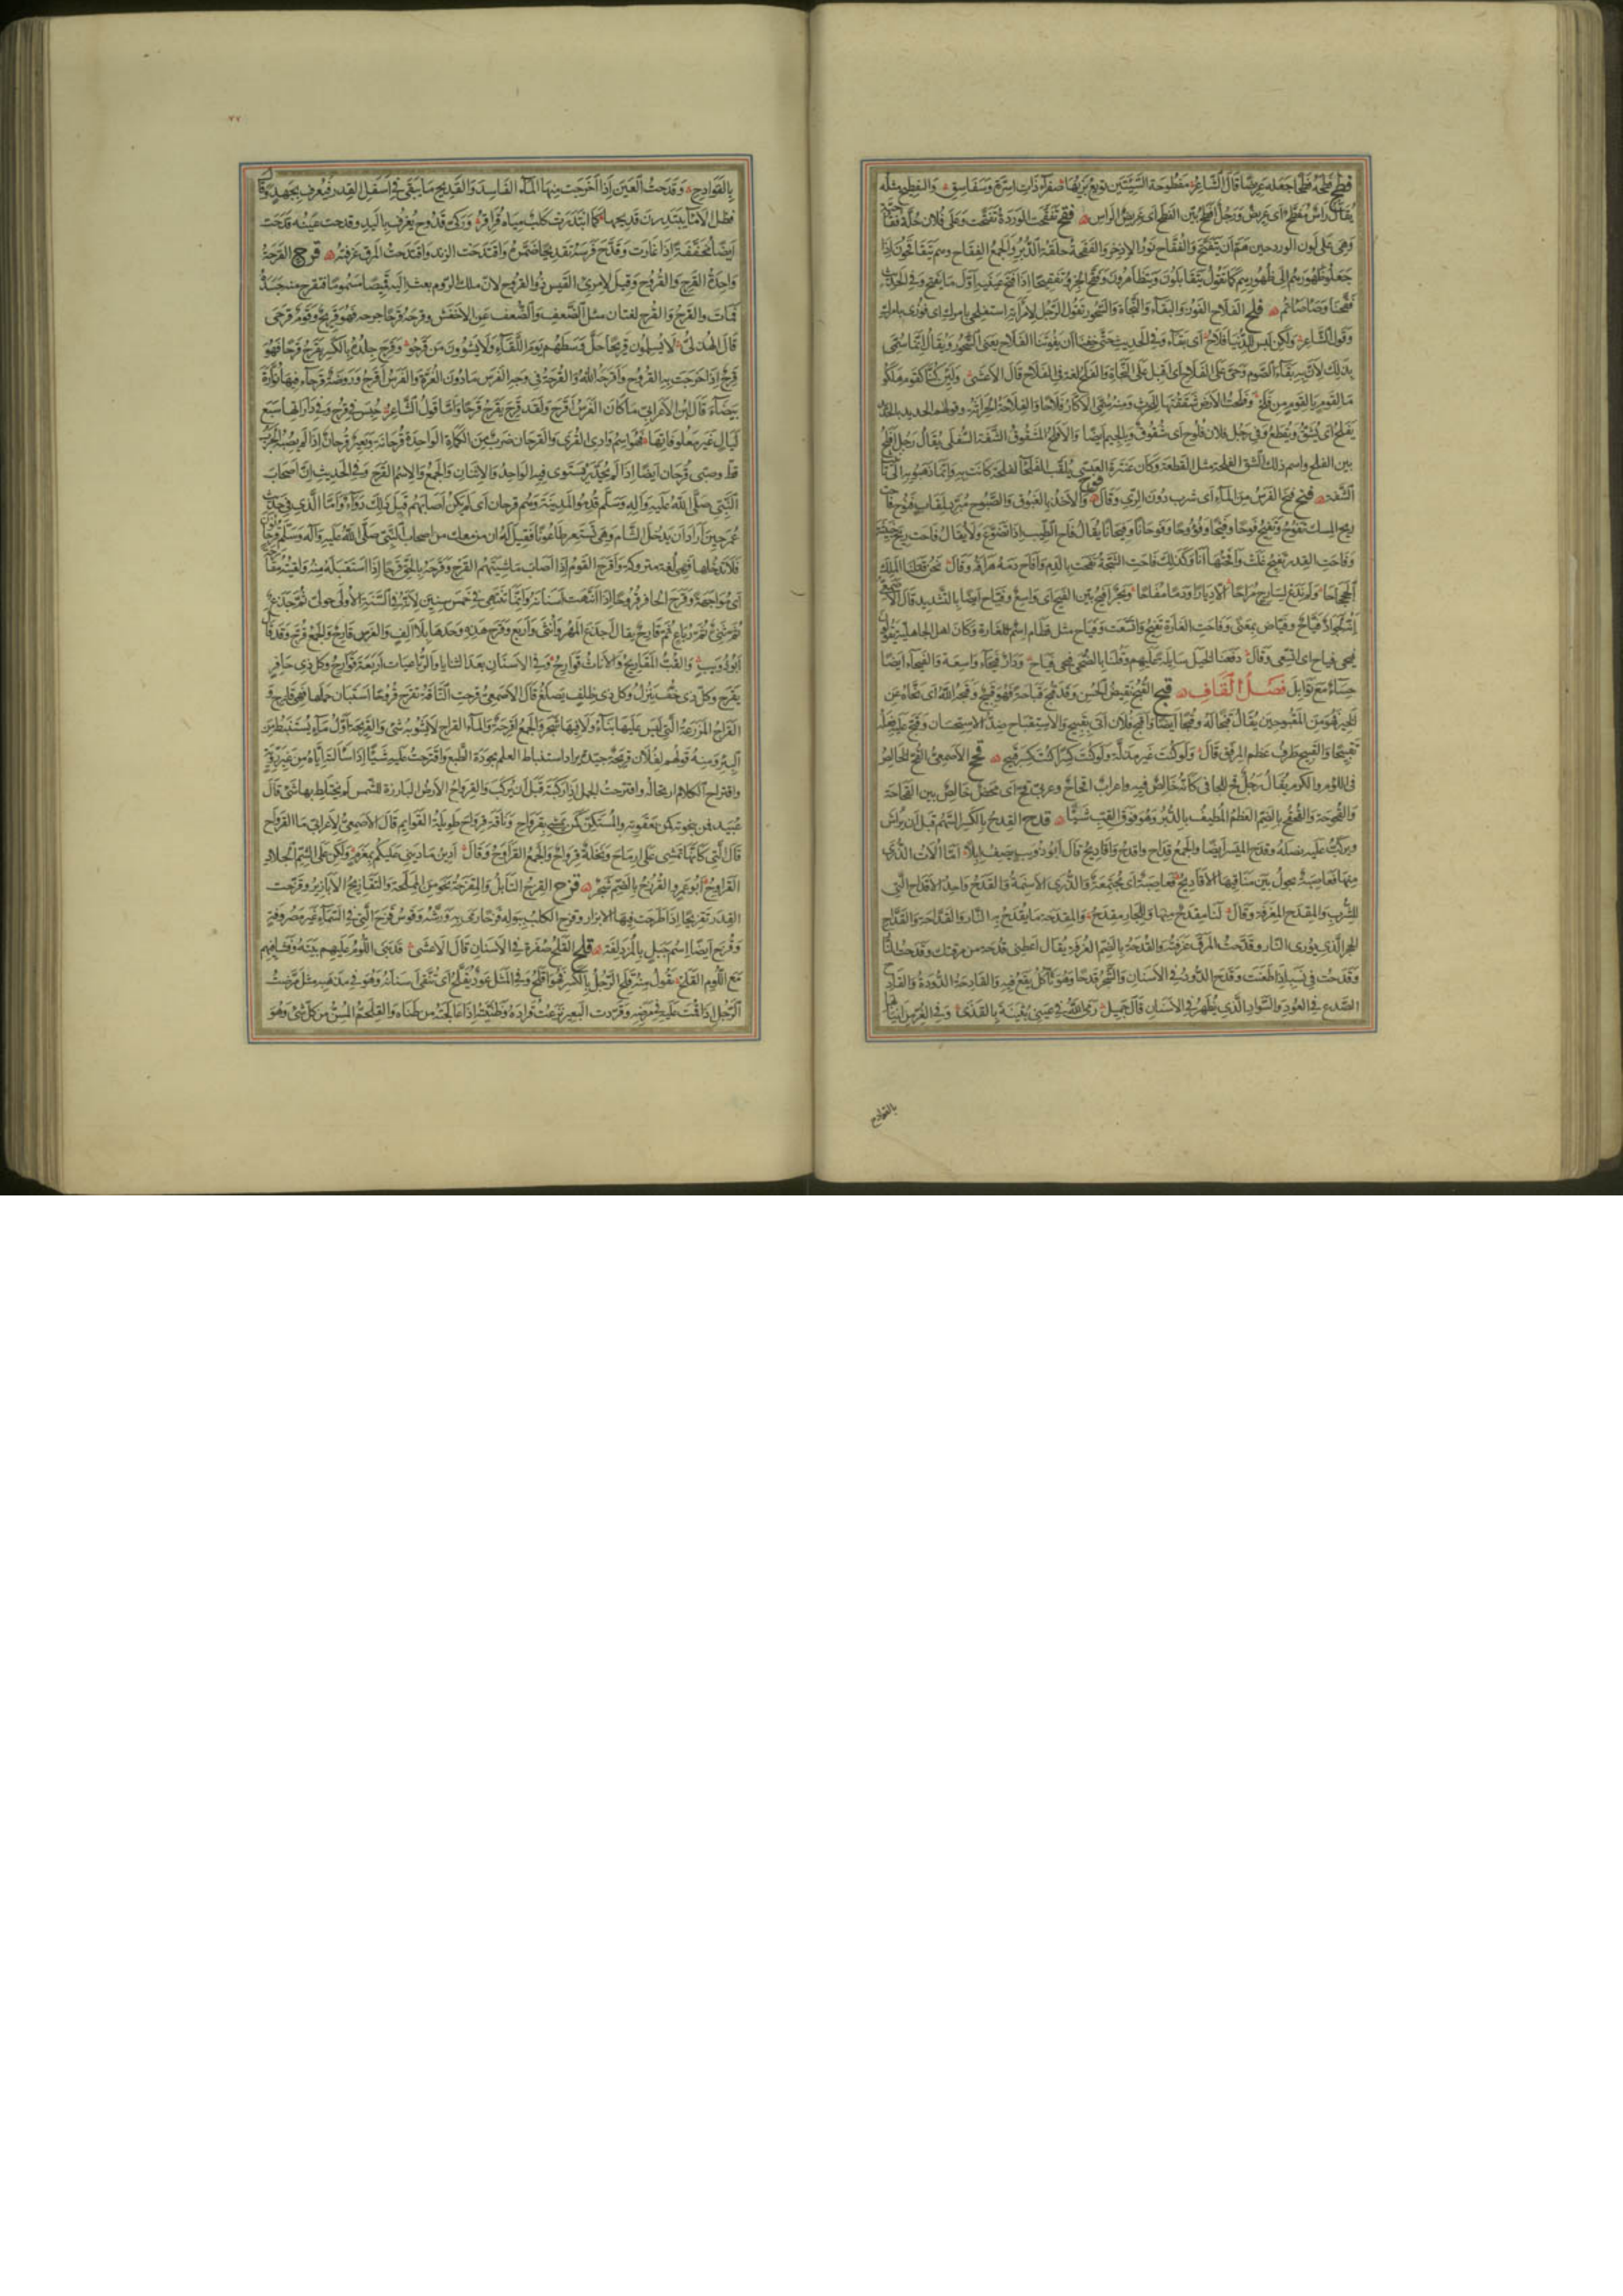 فطح فطحه فطحا جعله عريضا قال الشاعر مفطوحة السيتين توبع بريها صفراء ذات اسرة وسفاسق والتفطيح مثله
يقال راس مفطح اى عريض ورجل افطح بين الفطح اى عريض الراس فقح تفقحت الوردة تفتحت وعلى فلان حلة فقاحية
وهى على لون الورد حين هم ان يتفتح والفقاح نور الاذخر والفقحة حلقة الدبر والجمع الفقاح وهم يتفاقحون اذا
جعلوا ظهورهم الى ظهورهم كما تقول يتقابلون ويتظاهرون وفقح الجرو تفقيحا اذا فتح عينيه اول ما يفتح وفى الحديث
فقحنا وصأصأتم فلح الفلاح الفوز والبقاء والنجاة والسحور تقول الرجل لامراته استفلحى بامرك اى فوزى بامرك
وقول الشاعر ولكن ليس للدنيا فلاح اى بقاء وفى الحديث حتى خفنا ان يفوتنا الفلاح يعنى السحور ويقال انما سمى
بذلك لان به بقاء الصوم وحى على الفلاح اى اقبل على النجاة والفلح لغة فى الفلاح قال الاعشى ولئن كنا كقوم هلكوا
ما لقوم يا لقوم من فلح وفلحت الارض شققتها للحرث ومنه سمى الاكار فلاحا والفلاحة الحراثة وقولهم الحديد بالحديد
يفلح اى يشق ويقطع وفى رجل فلان فلوح اى شقوق وبالجيم ايضا والافلح المشقوق الشفة السفلى يقال رجل افلح
بين الفلح واسم ذلك الشق الفلحة مثل القطعة وكان عنترة العبسى يلقب الفلحاء لفلحة كانت به وانما ذهبوا به الى تانيث
الشفة فنح فنح الفرس من الماء اى شرب دون الرى وقال والاخذ بالغبوق والصبوح مبردا لمقاب فنوح فوح فاحت
ريح المسك تفوح وتفيح فوحا وفيحا وفووحا وفوحانا وفيحانا يقال فاح الطيب اذا تضوع ولا يقال فاحت ريح خبيثة
وفاحت القدر تفيح غلت وافحتها انا وكذلك فاحت الشجة نفحت بالدم وافاح دمه هراقه وقال نحن قتلنا الملك
الجحجاحا ولم ندع لسارح مراحا الا ديارا او دما مفاحا وبحر افيح بين الفيح اى واسع وفياح ايضا بالتشديد قال الاصمعى
انه لجواد فياح وفياض بمعنى وفاحت الغارة تفيح واتسعت وفياح مثل قطام اسم للغارة وكان اهل الجاهلية يقولون
فيحى فياح اى اتسعى وقال دفعنا الخيل سايلة عليهم وقلنا بالضحى فيحى فياح ودار فيحاء واسعة والفيحاء ايضا
حساء مع توابل فصل القاف قبح القبح نقيض الحسن وقد قبح قباحة فهو قبيح وقبحه الله اى نحاه عن
الخير فهو من المقبوحين يقال قبحا له وقبحا ايضا واقبح فلان اتى بقبيح والاستقباح ضد الاستحسان وقبح عليه فعله
تقبيحا والقبيح طرف عظم المرفق قال ولو كنت عيرا كنت عير مذلة ولو كنت كسرا كنت كسر قبيح قحح الاصمعى القح الخالص
فى اللؤم والكرم يقال رجل قح للجافى كانه خالص فيه واعراب اقحاح وعربى قح اى محض خالص بين القحاحة
والقحوحة والقحقح بالضم العظم المطيف بالدبر وهو فوق القب شيئا قدح القدح بالكسر السهم قبل ان يراش
ويركب عليه نصله وقدح الميسر ايضا والجمع قداح واقدح واقاديح قال ابو ذؤيب يصف ابلا اما اولات الذرى
منها فعاصبة تجول بين مناقيها الاقاديح فعاصبة اى مجتمعة والذرى الاسنمة والقدح واحد الاقداح التى
للشرب والمقدح المغرفة وقال لنا مقدح منها وللجار مقدح والمقدحة ما يقدح به النار والقداحة والقداح
الحجر الذى يورى النار وقدحت المرق غرفته والقدحة بالضم الغرفة يقال اعطنى قدحة من مرقتك وقدحت النار
وقدحت فى نسبه اذا طعنت وقدح الدود فى الاسنان والشجر قدحا وهو تاكل يقع فيه والقادحة الدودة والقادح
الصدع فى العود والسواد الذى يظهر فى الاسنان قال جميل رمى الله فى عينى بثينة بالقذى وفى الغر من انيابها
بالقوادح
بالقوادح وقدحت العين اذا اخرجت منها الماء الفاسد والقديح ما يبقى فى اسفل القدر فيغرف بجهد وقال
فظل الاماء يبتدرن قديحها كما ابتدرت كلب مياه قراقر وركى قدوح يغرف باليد وقدحت عينه وقدحت
ايضا مخففة اذا غارت وقدح فرسه تقديحا ضمره واقتدحت الزند واقتدحت المرق غرفته قرح القرحة
واحدة القرح والقروح وقيل لامرئ القيس ذو القروح لان ملك الروم بعث اليه قميصا مسموما فتقرح منه جسده
فمات والقرح والقرح لغتان مثل الضعف والضعف عن الاخفش وقرحه قرحا جرحه فهو قريح وقوم قرحى
قال الهذلى لا يسلمون قريحا حل وسطهم يوم اللقاء ولا يشوون من قرحوا وقرح جلده بالكسر يقرح قرحا فهو
قرح اذا خرجت به القروح واقرحه الله والقرحة فى وجه الفرس ما دون الغرة والفرس اقرح وروضة قرحاء فيها نوارة
بيضاء قال ابن الاعرابى ما كان الفرس اقرح ولقد قرح يقرح قرحا واما قول الشاعر حبسن فى قرح وفى دارتها سبع
ليال غير معلوفاتها فهو اسم وادى القرى والقرحان ضرب من الكماة الواحدة قرحانة وبعير قرحان اذا لم يصبه الجرب
قط وصبى قرحان ايضا اذا لم يجدر يستوى فيه الواحد والاثنان والجمع والاسم القرح وفى الحديث ان اصحاب
النبى صلى الله عليه واله وسلم قدموا المدينة وهم قرحان اى لم يكن اصابهم قبل ذلك داء واما الذى فى حديث
عمر حين اراد ان يدخل الشام وهى تستعر طاعونا فقيل له ان من معك من اصحاب النبى صلى الله عليه واله وسلم قرحانون
فلا تدخلها فهى لغة متروكة واقرح القوم اذا اصاب ماشيتهم القرح وقرحه بالحق قرحا اذا استقبله به ولقيته مقارحة
اى مواجهة وقرح الحافر قروحا اذا انتهت اسنانه وانما تنتهى فى خمس سنين لانه فى السنة الاولى حولى ثم جذع
ثم ثنى ثم رباع ثم قارح يقال اجذع المهر واثنى واربع وقرح هذه وحدها بلا الف والفرس قارح والجمع قرح وقد قال
ابو ذؤيب والقب المقاريح والاناث قوارح وفى الاسنان بعد الثنايا والرباعيات اربعة قوارح وكل ذى حافر
يقرح وكل ذى خف يبزل وكل ذى ظلف يصلغ قال الاصمعى قرحت الناقة تقرح قروحا استبان حملها فهى قارح و
القراح المزرعة التى ليس عليها بناء ولا فيها شجر والجمع اقرحة والماء القراح لا يشوبه شئ والقريحة اول ماء يستنبط من
البئر ومنه قولهم لفلان قريحة جيدة يراد استنباط العلم بجودة الطبع واقترحت عليه شيئا اذا سالته اياه من غير روية
واقتراح الكلام ارتجاله واقترحت الجمل اذا ركبته قبل ان يركب والقرواح الارض البارزة للشمس لم يختلط بها شئ قال
عبيد فمن بنجوته كمن بعقوته والمستكن كمن يمشى بقرواح وناقة قرواح طويلة القوايم قال الاصمعى لاعرابى ما القرواح
قال التى كانها تمشى على ارماح ونخلة قرواح والجمع القراوح وقال ادين وما دينى عليكم بمغرم ولكن على الشم الجلاد
القراوح ابو عمرو القرزح بالضم شجر قزح القزح التابل والمقزحة نحو من المملحة والتقازيح الابازير وقزحت
القدر تقزيحا اذا طرحت فيها الابزار وقزح الكلب ببوله قزحا رمى به ورشه وقوس قزح التى فى السماء غير مصروفة
وقزح ايضا اسم جبل بالمزدلفة قلح القلح صفرة فى الاسنان قال الاعشى قد بنى اللؤم عليهم بيته وفشا فيهم
مع اللؤم القلح تقول منه قلح الرجل بالكسر فهو اقلح وفى المثل عود يقلح اى تنقى اسنانه وهو فى مذهبه مثل مرضت
الرجل اذا قمت عليه فى مرضه وقردت البعير نزعت قراده وطنيته اذا عالجته من طناه والقلحم المسن من كل شئ وهو